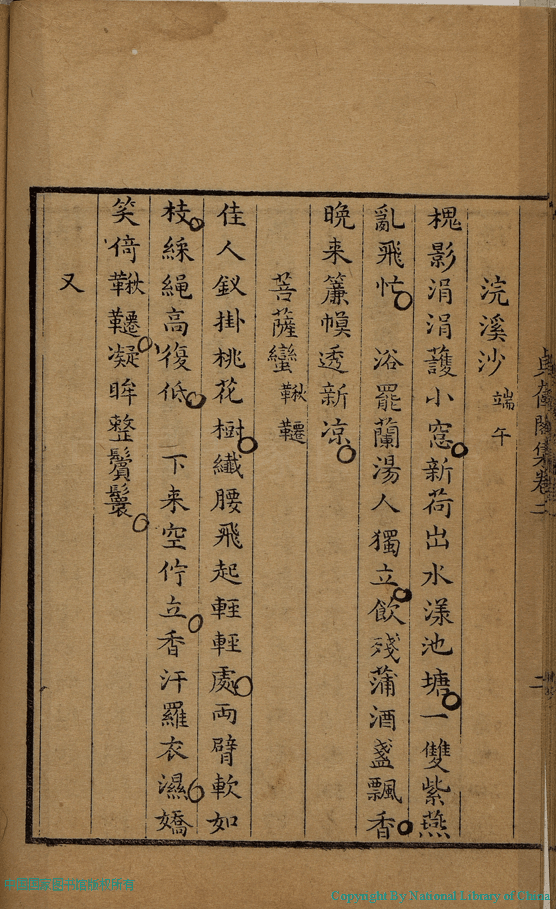 浣溪沙 端午
槐影涓涓蔓小窓新荷出水漾池塘一雙紫燕
亂飛忙 浴罷蘭湯人獨立飲殘蒲酒盞飄香
晚来簾幙透新涼
菩薩蠻 鞦韆
佳人釵掛桃花樹纖腰飛起輕輕處兩臂軟如
枝綵繩高復低 下来空佇立香汗羅衣濕嬌
笑倚鞦韆凝眸整鬢鬟
又
卷二
二
Copyright By National Library of China